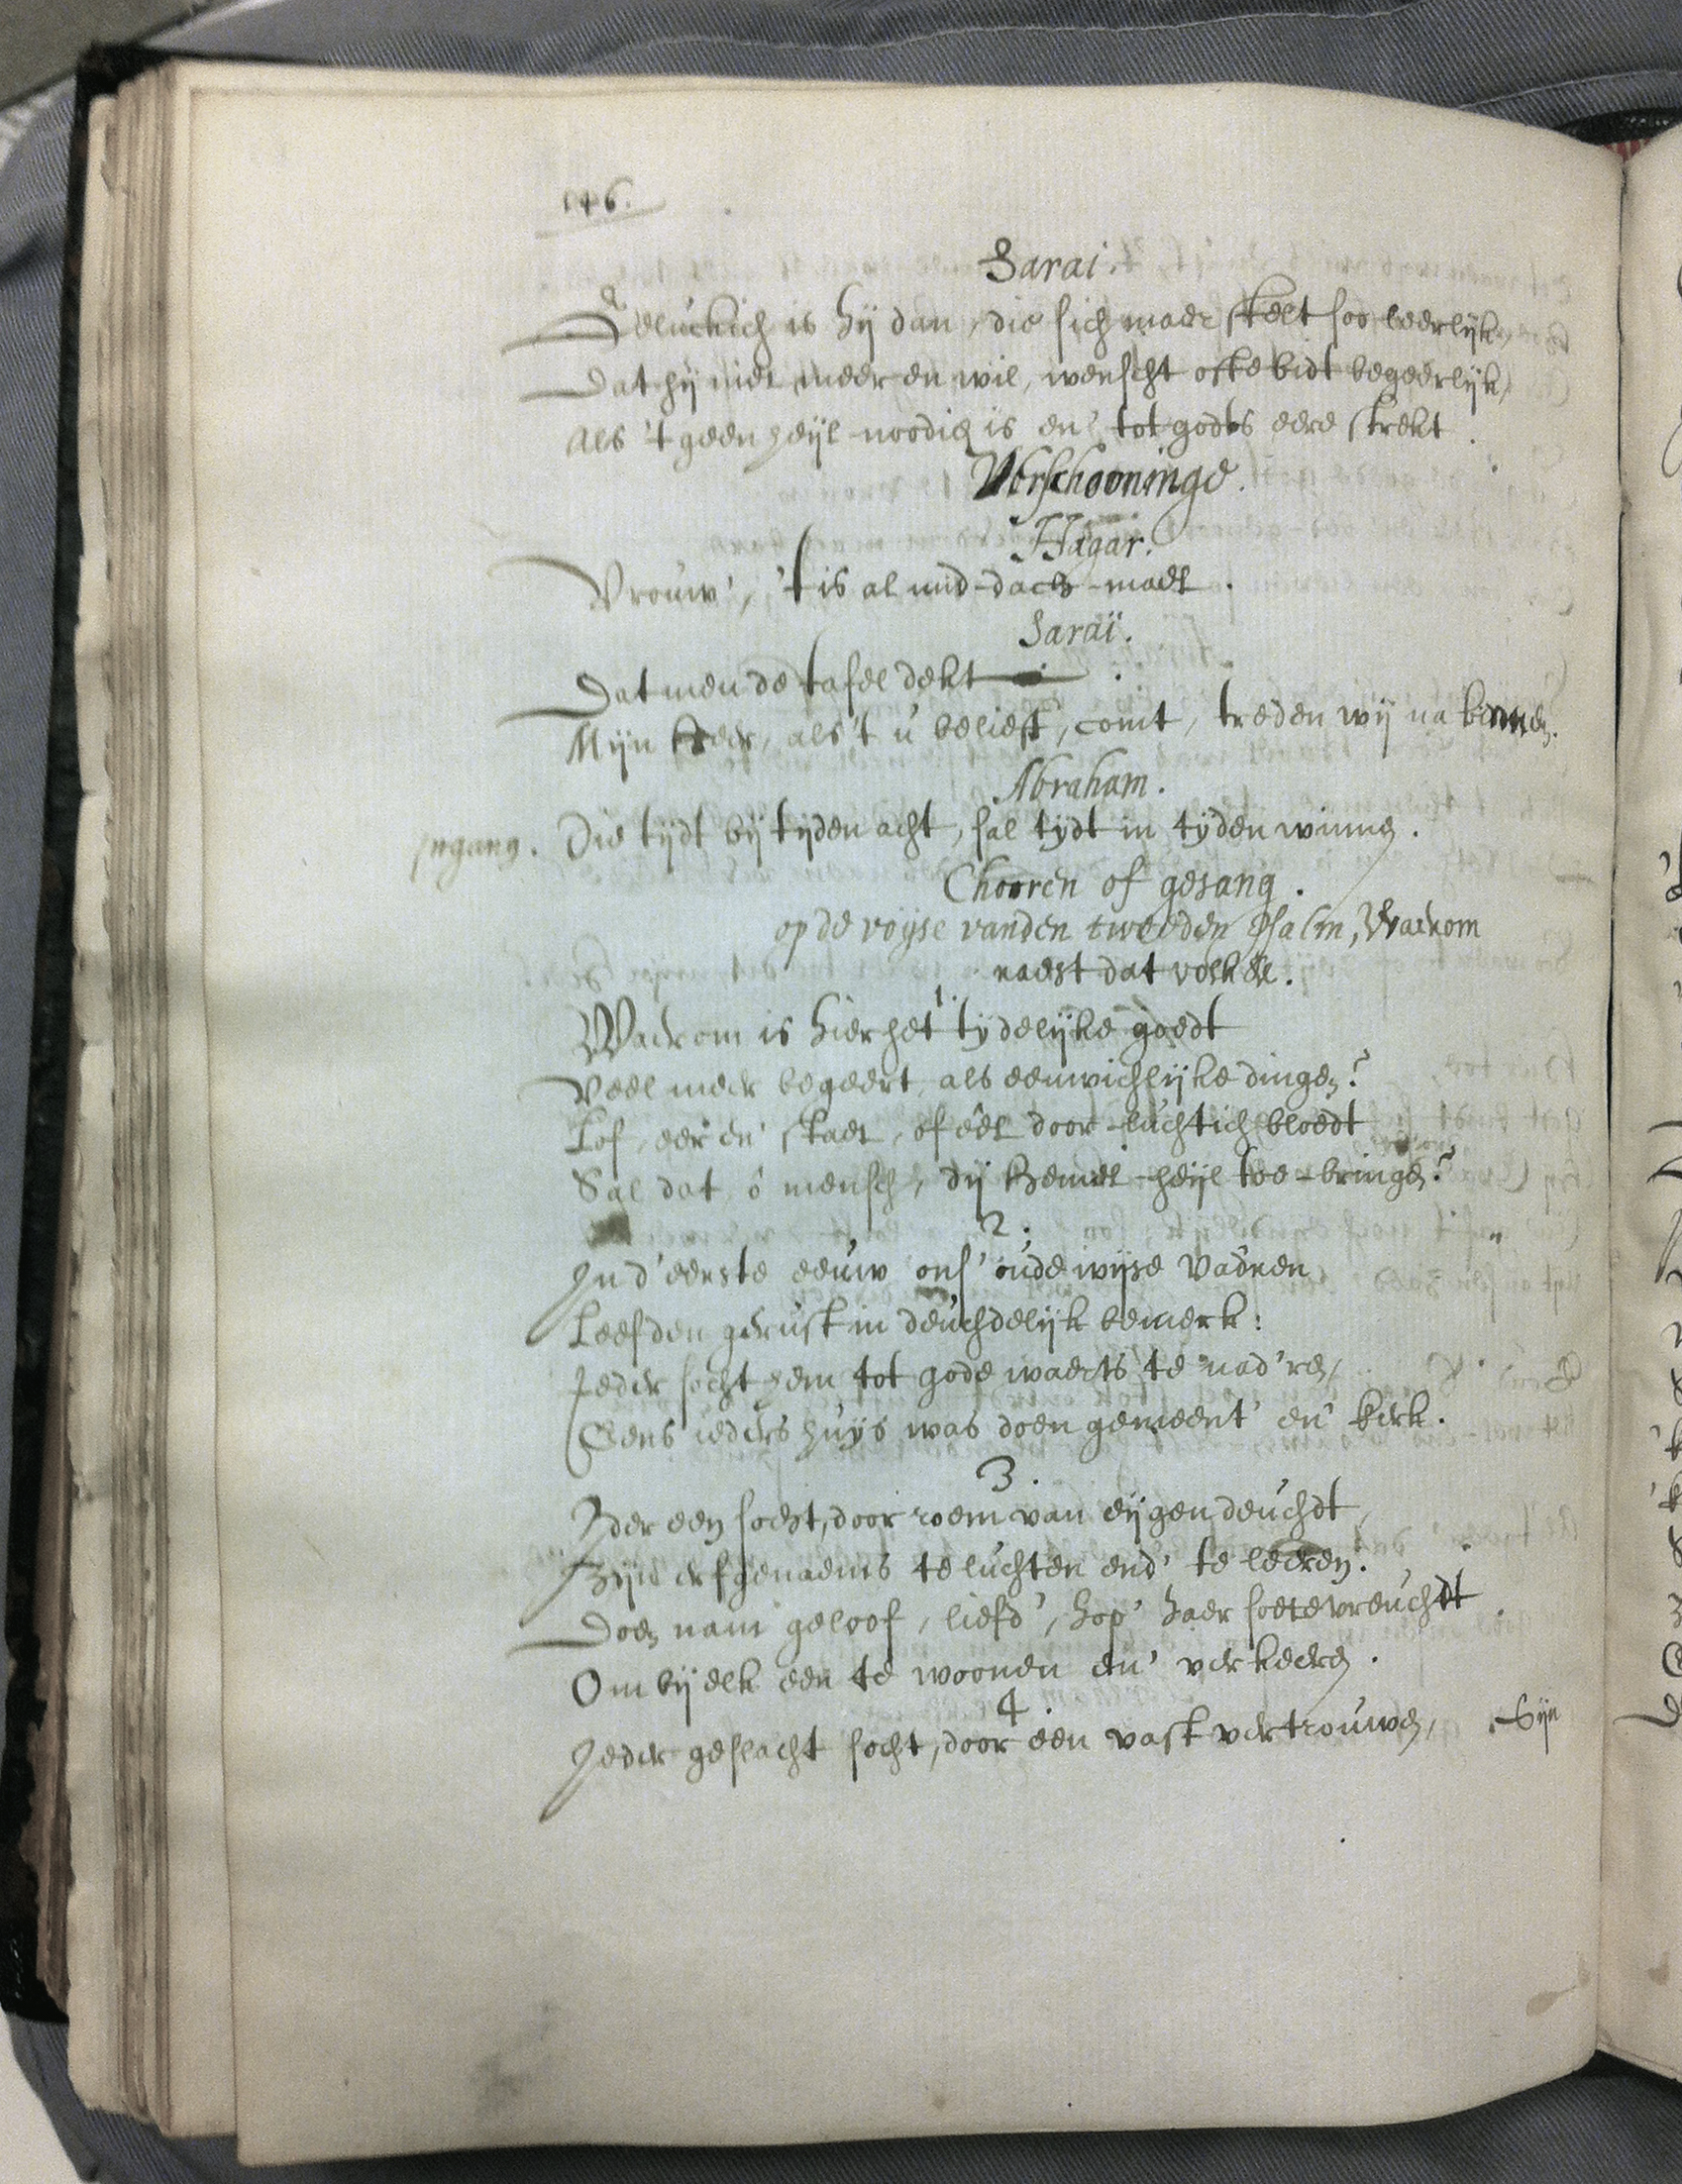 146.
Sarai.
Geluckich is hij dan, die sich maer stelt soo leerlijk,
Dat hij niet meer en wil, wenscht ofte bidt begeerlijk,
Als 't geen heijl-noodich is en' tot godts eere strekt.
Verschooninge.
Hagar.
Vrouw', 't is al mid-dach-mael.
Saraï.
Dat men de tafel dekt
Mijn Heer, als 't u beliest, comt, treden wij na binnen.
Abraham.
Ingang. Die tijdt bij tijden acht, sal tijdt in tijden winnen.
Chooren of gesang.
op de voijse vanden tweeden Psalm, Waerom
raest dat volk &c.
1.
Waerom is hier het tijdelijke goedt
Veel meer begeert, als eeuwichlijke dingen?
Lof, eer en' staet, of eêl door-luchtich bloedt
Sal dat, ô mensch, dij Hemel-heijl toe-bringen?
2.
In d'eerste eeuw ons' oude wijse Vadren
Leefden gerust in deuchdelijk bemerk:
Ieder socht hem tot gode waerts te nad'ren,
Eens ieders huijs was doen gemeent' en' kerk.
3.
Ider een socht, door roem van eijgen deuchdt,
Zijn erfgenaems te luchten end' te leeren.
Doen nam geloof, liefd', hop' haer soete vreuchdt
Om bij elk een te woonen en' verkeeren.
4.
Ieder geslacht socht, door een vast vertrouwen,
Sijn